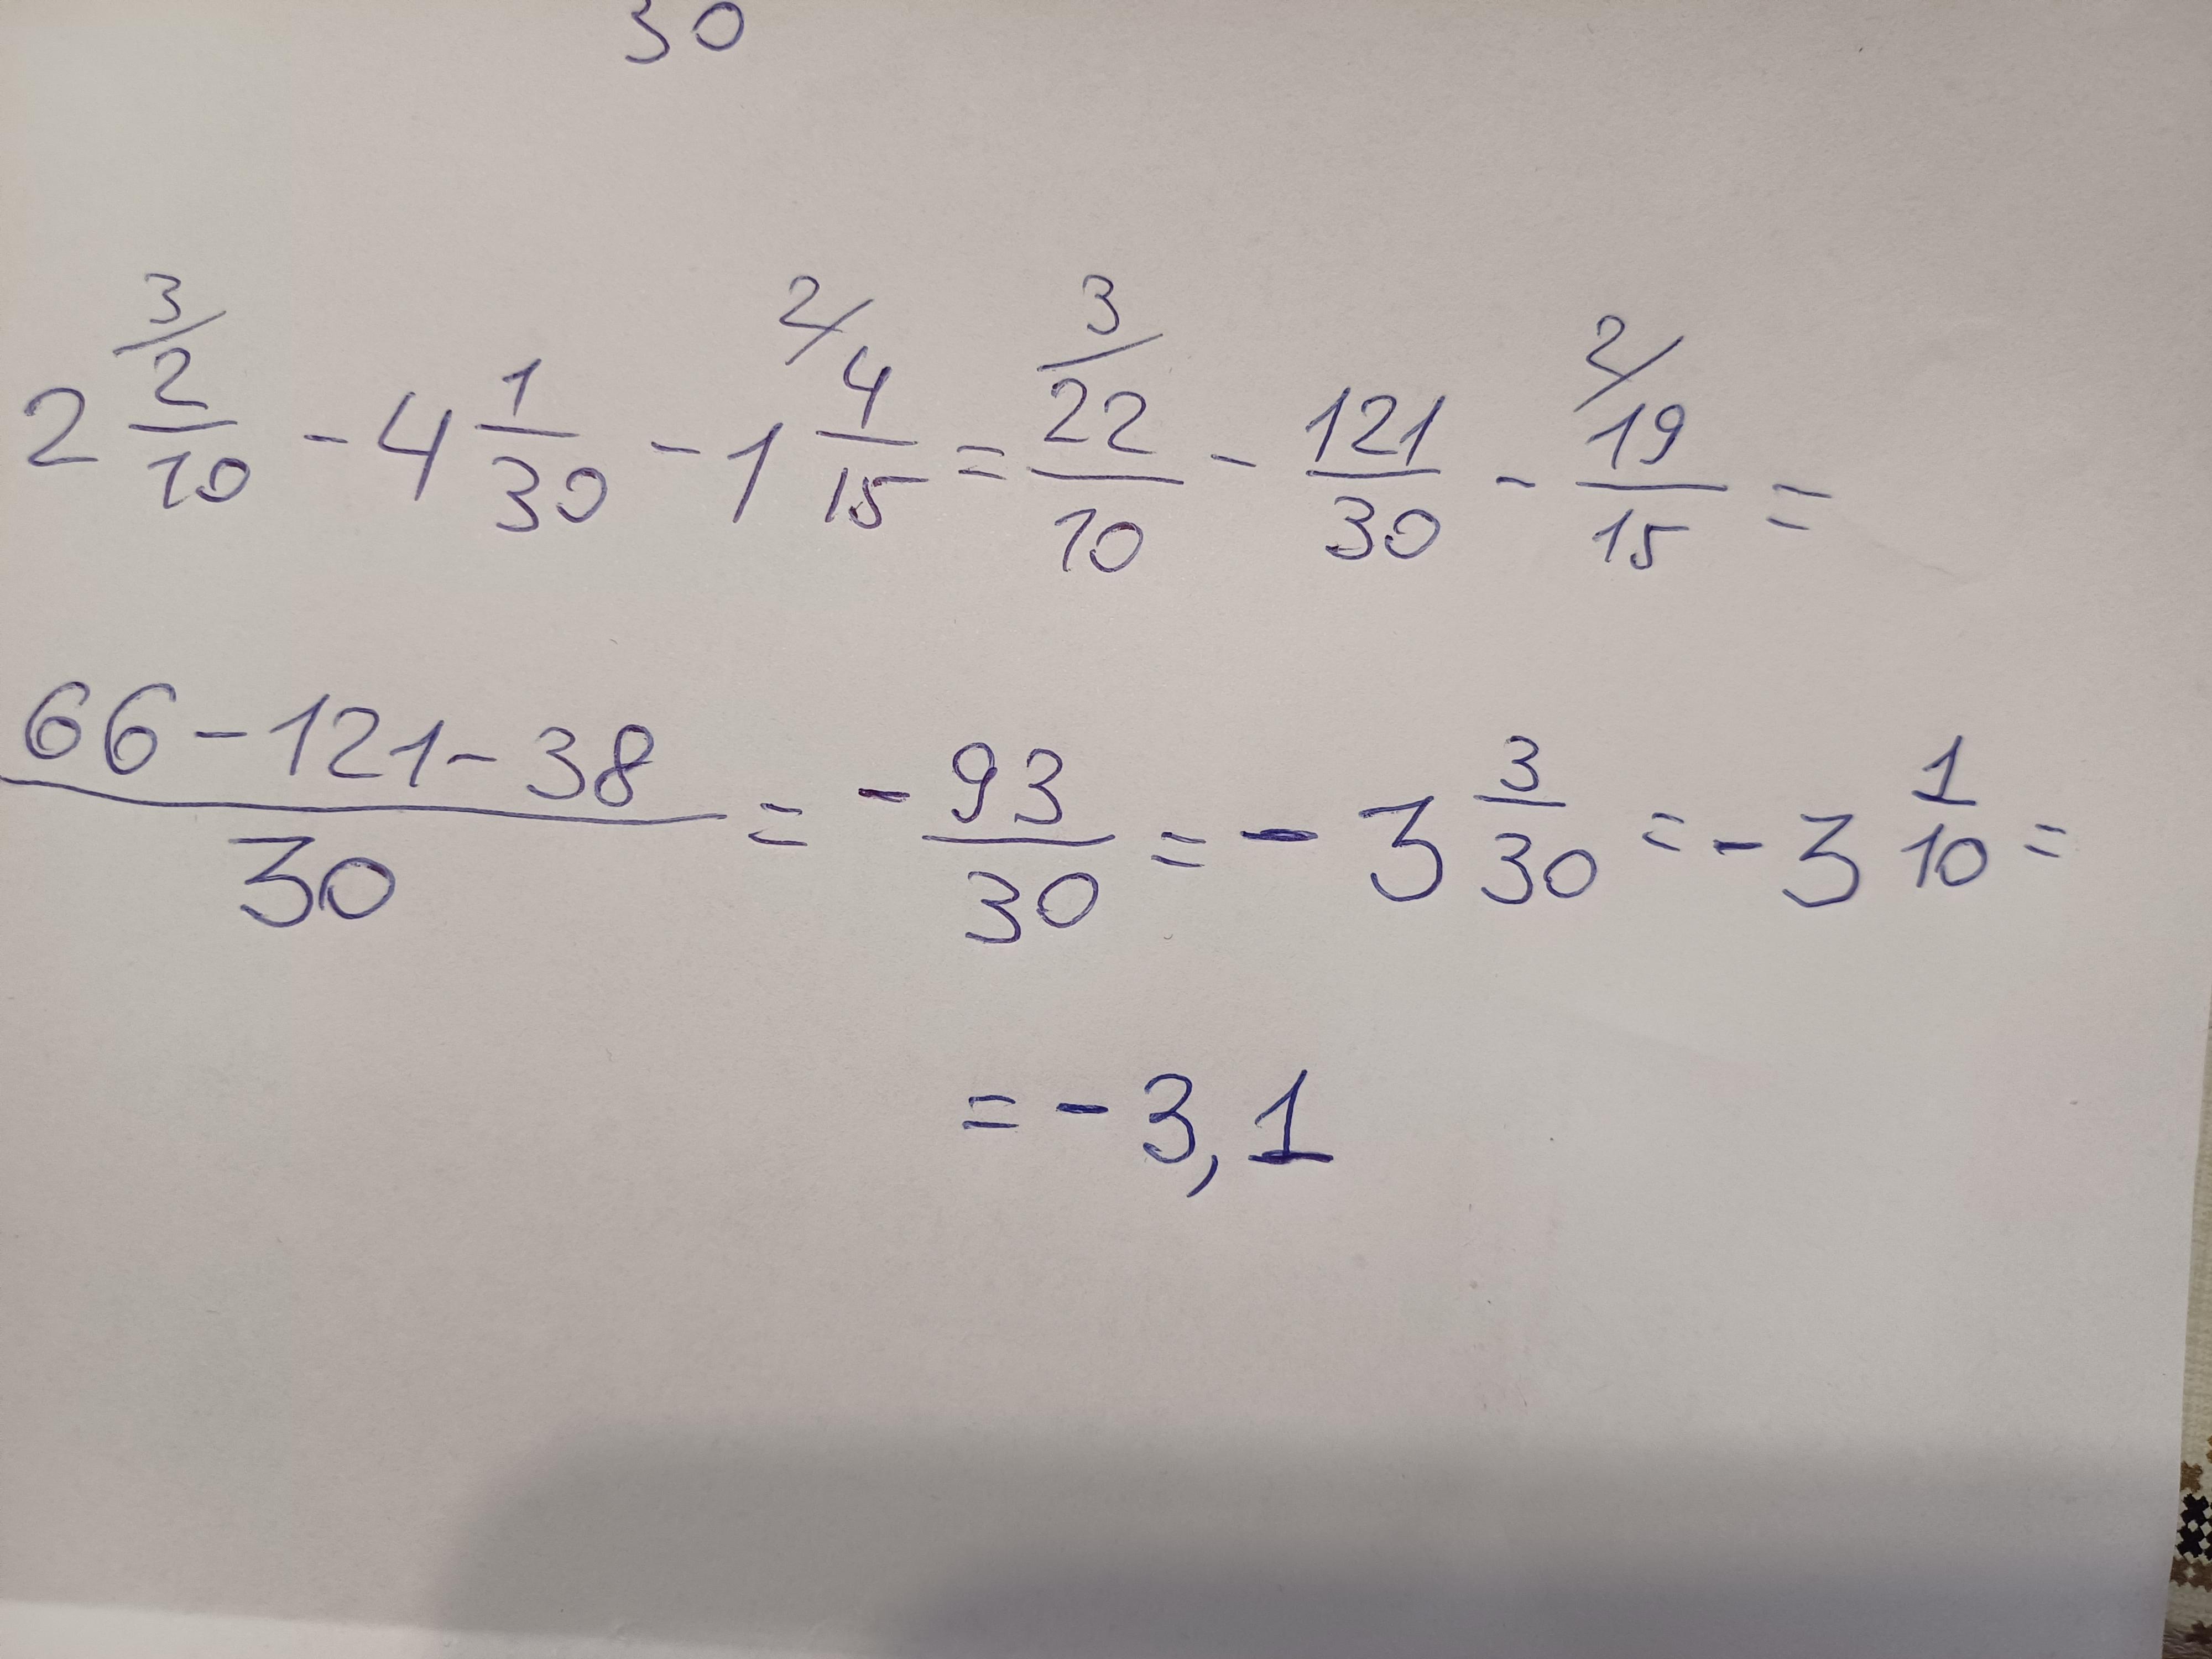 30
2 3/ 2/10 - 4 1/30 - 1 2/ 4/15 = 3/ 22/10 - 121/30 - 2/ 19/15 =
66-121-38/30 = - 93/30 = - 3 3/30 = - 3 1/10 =
= - 3,1